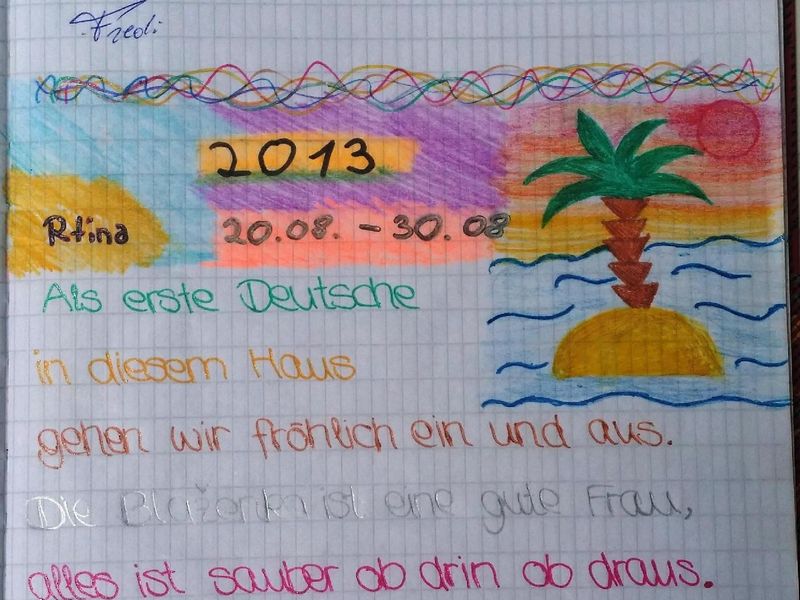 Fredi
2013
Rtina 20.08. - 30.08
Als erste Deutsche
in diesem Haus
gehen wir fröhlich ein und aus.
Die Blaženka ist eine gute Frau,
alles ist sauber ob drin ob draus.